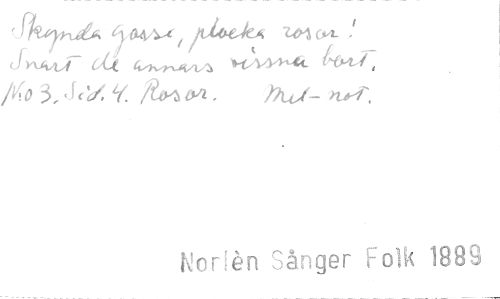 Skynda gosse, plocka rosor!
Snart de annars vissna bort.
No 3. Sid. 4. Rosor. Mel-not.
Norlèn Sånger Folk 1889